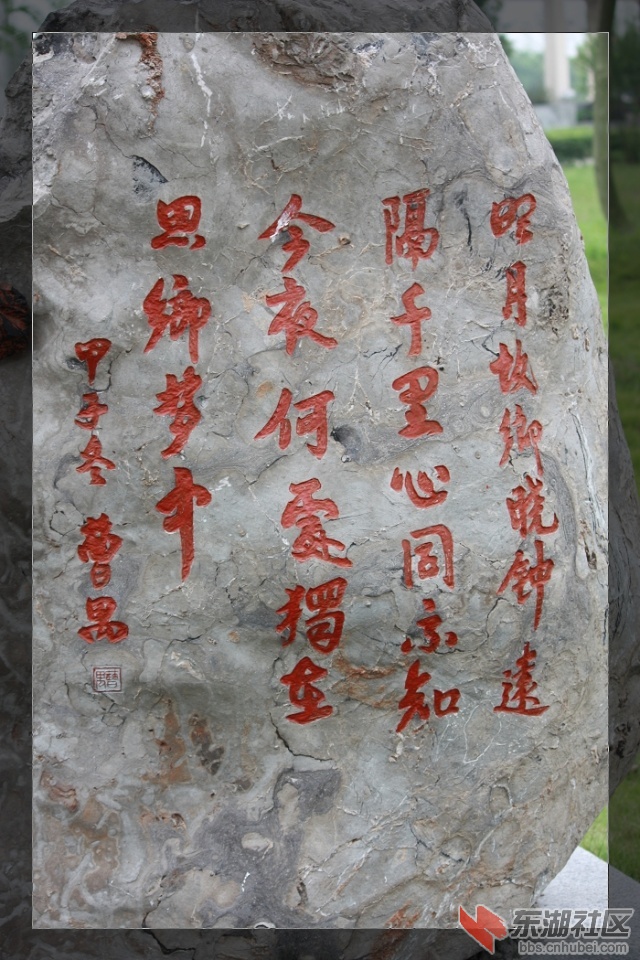 明月故鄉晓钟遠
隔千里心同不知
今夜何處獨在
思鄉梦中
甲子冬 曹禺
东湖社区
bbs.cnhubei.com